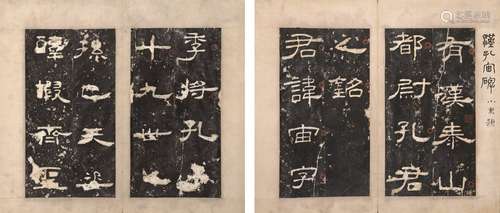 漢孔宙碑
有漢泰山
都尉孔君
之銘
君諱宙字
季將孔子
十九世之
孫也天姿
醇嘏齊聖